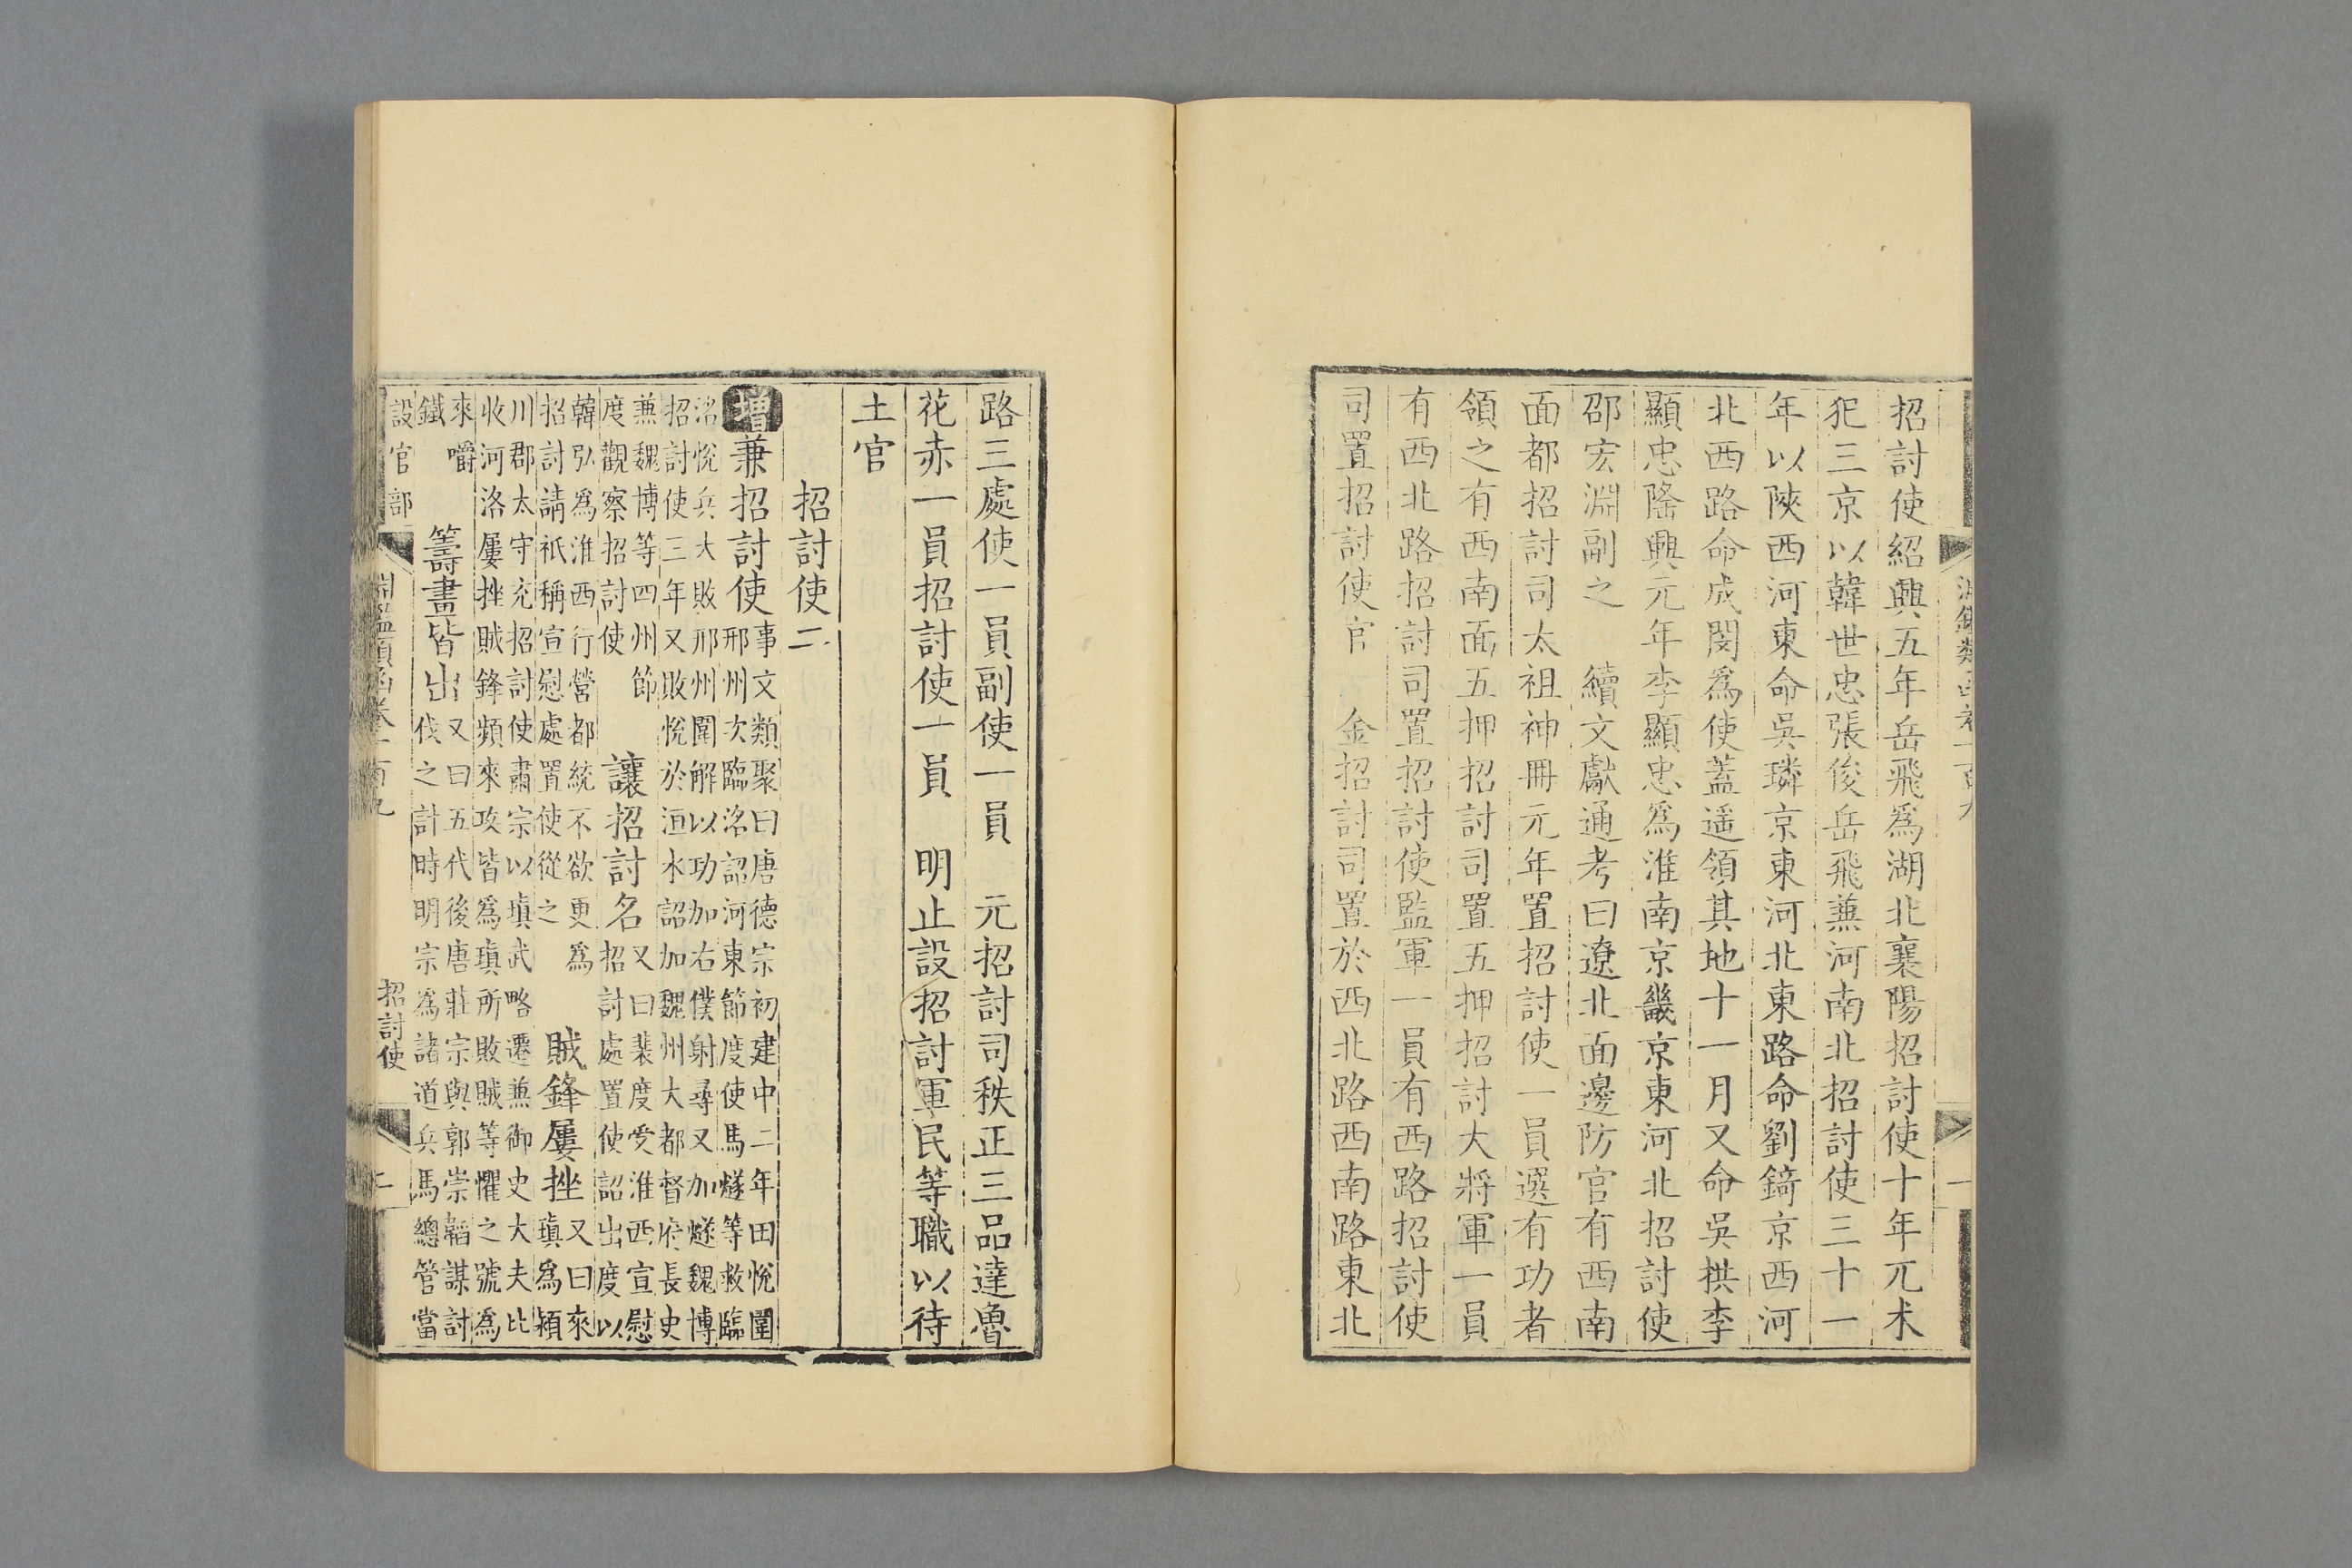 招討使紹興五年岳飛爲湖北襄陽招討使十年兀朮
犯三京以韓世忠張俊岳飛兼河南北招討使三十一
年以陝西河東命吳璘京東河北東路命劉錡京西河
北西路命成閔爲使蓋遥領其地十一月又命吳拱李
顯忠隆興元年李顯忠爲淮南京畿京東河北招討使
邵宏淵副之　續文獻通考曰遼北面邊防官有西南
面都招討司太祖神冊元年置招討使一員選有功者
領之有西南面五押招討司置五押招討大將軍一員
有西北路招討司置招討使監軍一員有西路招討使
司置招討使官　金招討司置於西北路西南路東北
路三處使一員副使一員　元招討司秩正三品達魯
花赤一員招討使一員　明止設招討軍民等職以待
土官
招討使二
增兼招討使
事文類聚曰唐德宗初建中二年田悅圍
邢州次臨洺詔河東節度使馬燧等救臨
洺悅兵大敗邢州圍解以功加右僕射尋又加燧魏博
招討使三年又敗悅於洹水詔加魏州大都督府長史
兼魏博等四州節
度觀察招討使
讓招討名
又曰裴度受淮西宣慰
招討處置使詔出度以
韓弘爲淮西行營都統不欲更爲
招討請祇稱宣慰處置使從之
賊鋒屢挫
又曰來
瑱爲潁
川郡太守充招討使肅宗以瑱武略遷兼御史大夫比
收河洛屢挫賊鋒頻來攻皆爲瑱所敗賊等懼之號爲
來嚼
鐵
籌畫皆出
又曰五代後唐莊宗與郭崇韜謀討
伐之計時明宗爲諸道兵馬總管當
設官部
淵鑑類函卷一百九
招討使
二